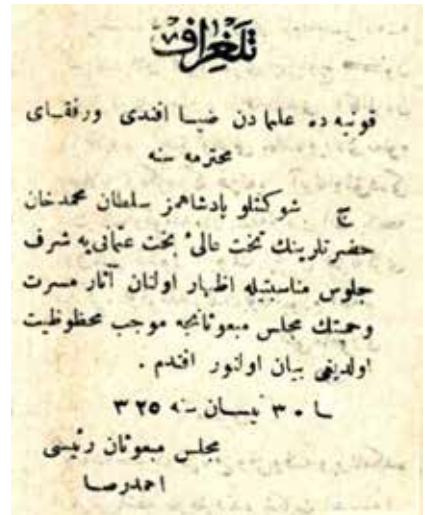 تلغراف
قونیه ده علمادن ضیا افندی ورفقای
محترمه سنه
ج شوکتلو پادشاهمز سلطان محمدخان
حضرتلرینك تخت عالیٔ بخت عثمانی‌یه شرف
جلوس مناسبتیله اظهار اولنان آثار مسرت
وحمیتك مجلس مبعوثانجه موجب محظوظیت
اولدیغی بیان اولنور افندم .
٣٠ نیسان سنه ٣٢٥
مجلس مبعوثان رئیسی
احمدرضا